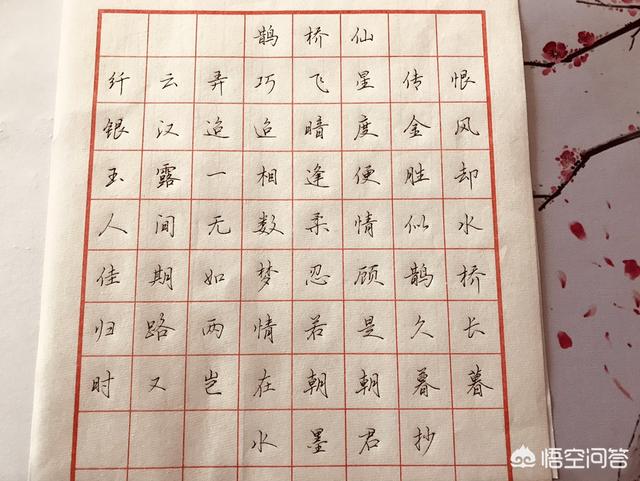 鹊桥仙
纤云弄巧飞星传恨
银汉迢迢暗度金风
玉露一相逢便胜却
人间无数柔情似水
佳期如梦忍顾鹊桥
归路两情若是久长
时又岂在朝朝暮暮
水墨君抄
悟空问答